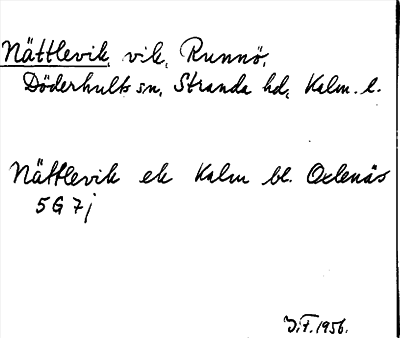 Nättlevik, vik, Runnö,
Döderhults sn, Stranda hd, Kalm. l.
Nättlevik ek Kalm bl. Oxlenäs
5G 7j
1956.